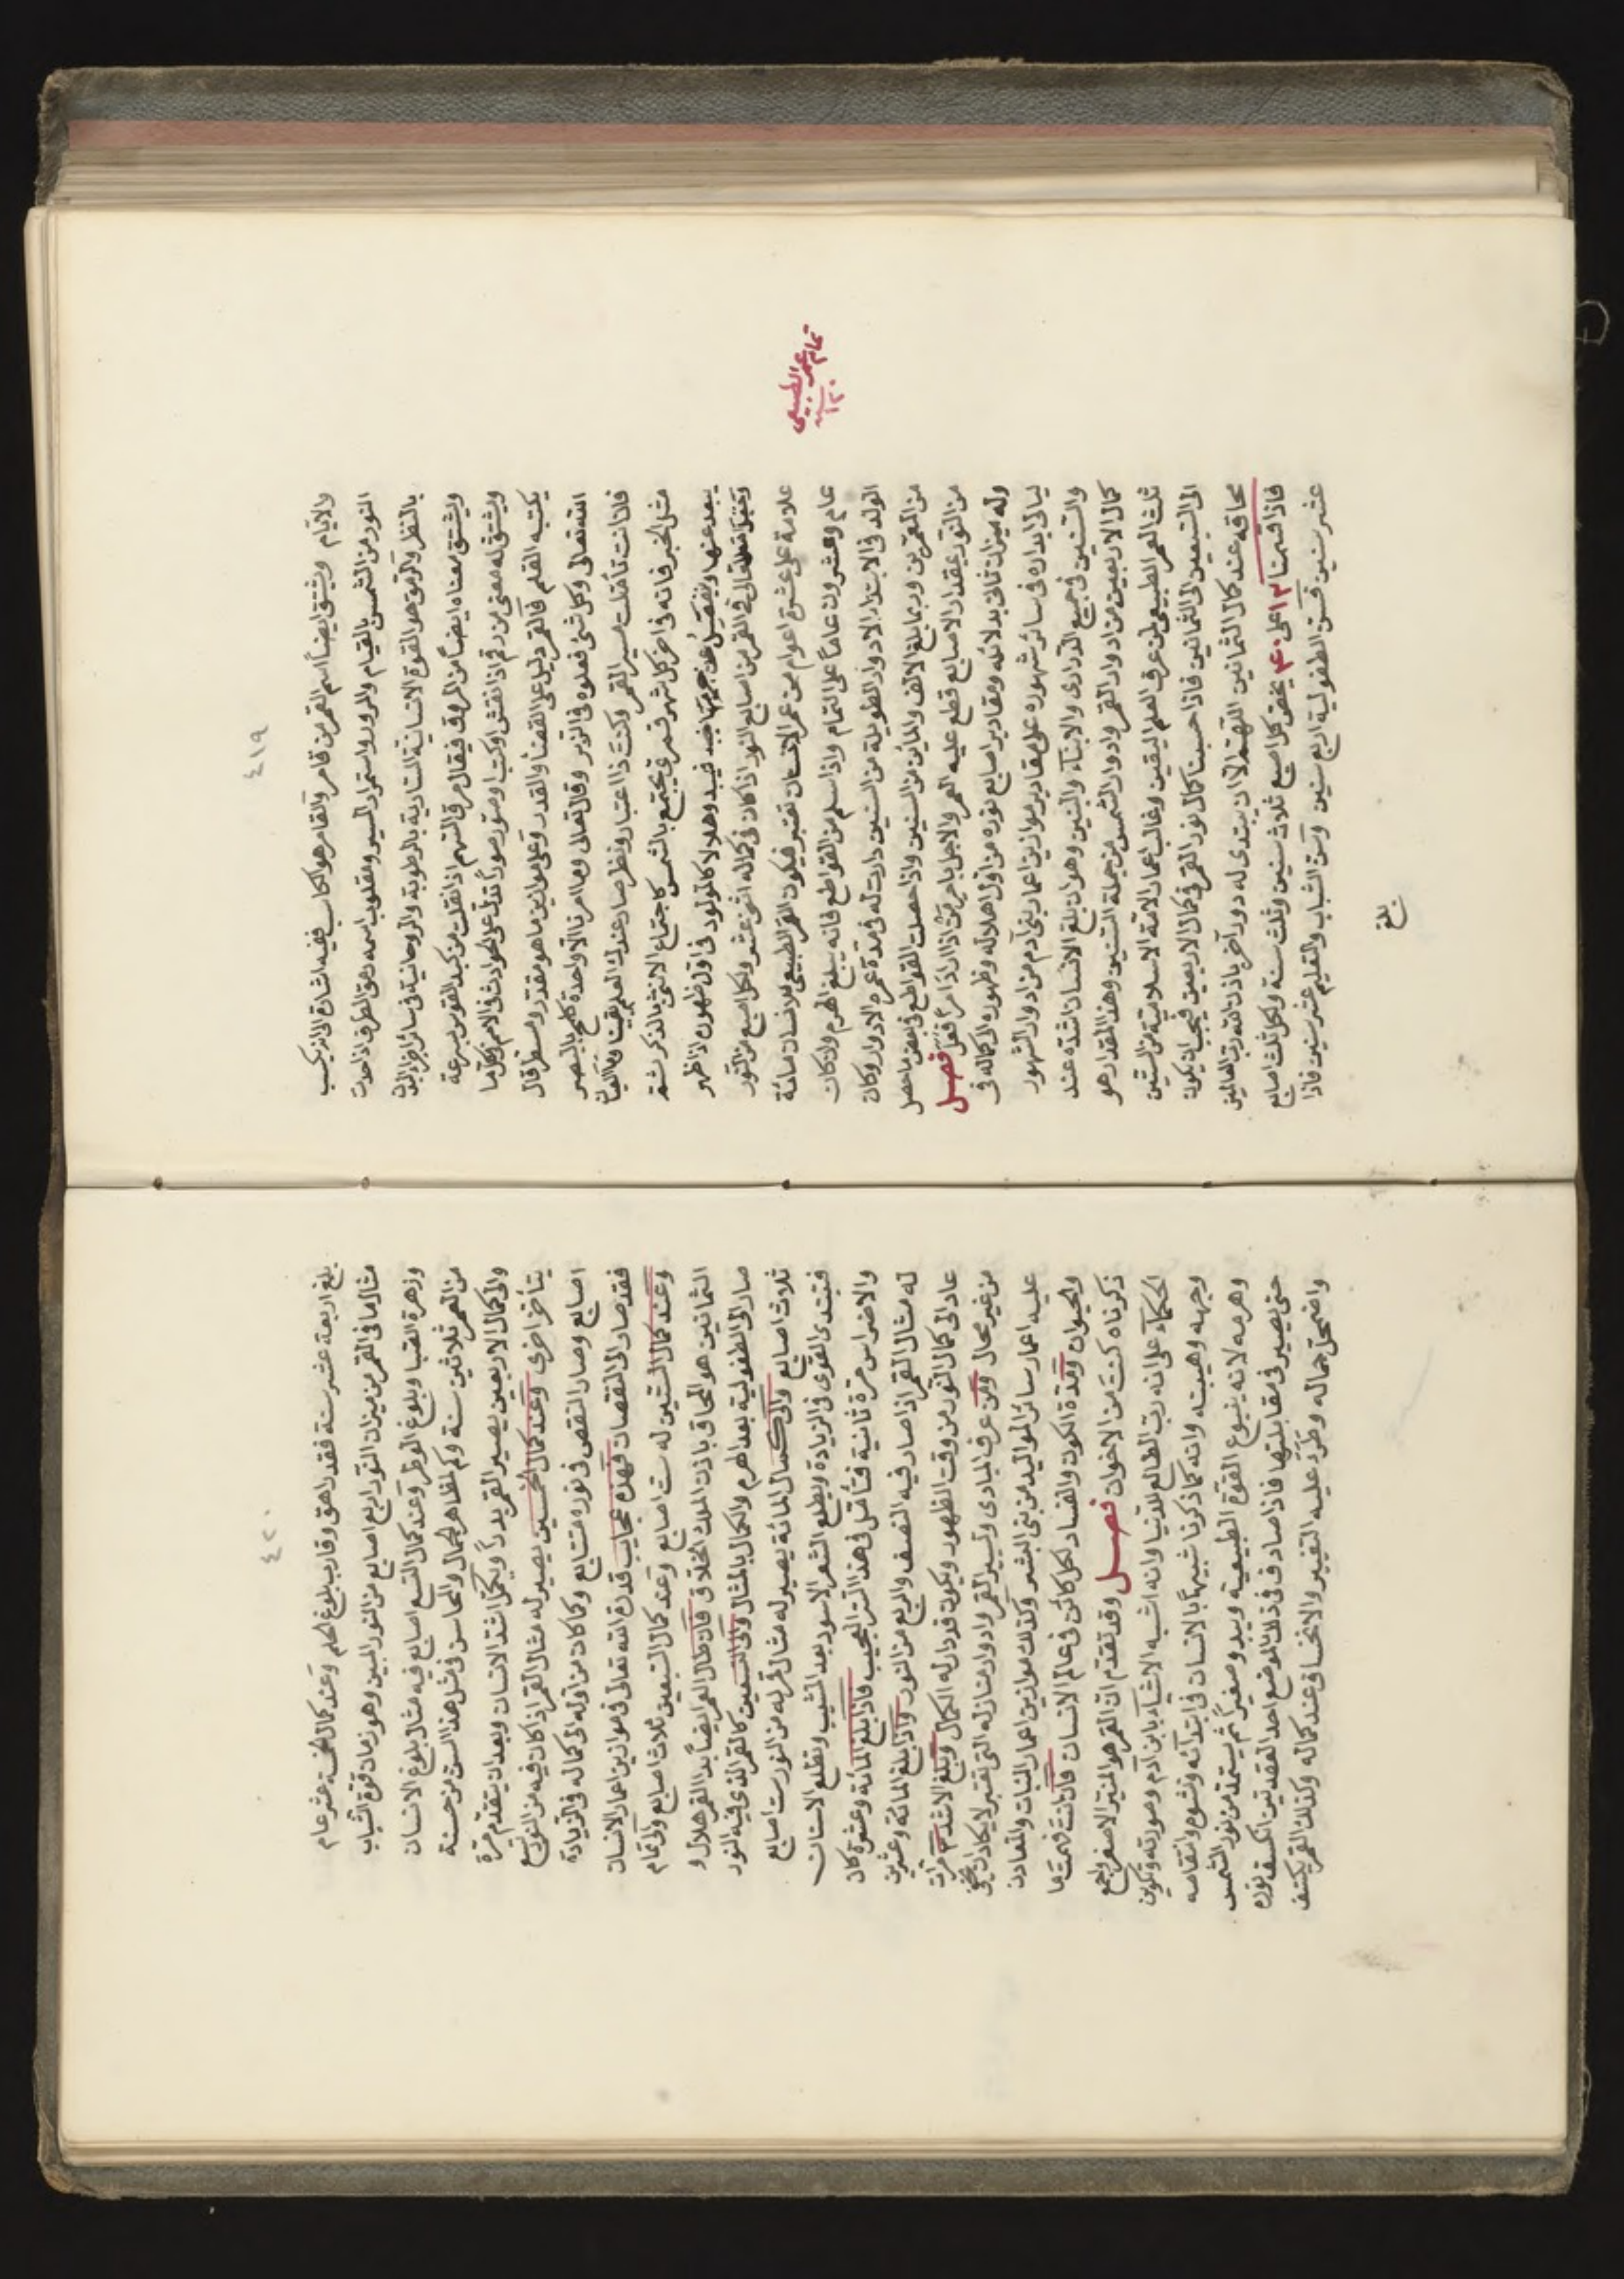 ٤١٩
والايام ويشتق ايضاً اسم القمر من قامر والقامر هو الكاسب ففيه اشارة لان يكسب
النور من الشمس بالقيام والمرور واستمرار السير ومقلوب اسمه رمق الطرف اذا احدث
بالنظر والرمق هو القوة الانسانية السارية بالرطوبة والروحانية في سائر اجزاء البدن
ويشتق معناه ايضاً من المروق فيقال مرق السهم اذا نفلت من كبد القوس بسرعة
ويشتق له معنى من رقم اذا نقش او كتب او صور صوراً تدل على الحوادث في الامم فكل ما
يكتبه القلم فالقمر دليل على القضا والقدر وعلى موازين ما هو مقدر ومسطر قال
الله تعالى وكل شئ فعلوه في الزبر وقال تعالى وما امرنا الا واحدة كلمح بالبصر
فاذا انت تأملت مسير القمر وكنت ذا اعتبار ونظر صار عندك العلم يقينا والعيان
مثل الخبر فانه في اخر كل شهر قمري يجتمع بالشمس كاجتماع الانثى بالذكر ثم
يبعد عنها وينفصل عن جرمها فيبدو هلالا كالمولود في اول ظهوره اذا ظهر
وجعل الله تعالى في القمر من اصابع النور اذا كان في كماله اثنى عشر ولكل اصبع من النور
علامة على عشرة اعوام من عمر الانسان تعتبر فيكون العمر الطبيعي للانسان مائة
عام وعشرون عاماً على التمام واذا سلم من القواطع فانه يبلغ الهرم وان كان
الولد في الابتداء الادوار الطويلة من السنين دارت له في مدة عمره الادوار وكان
من المعمرين وربما بلغ الالف والمائين من السنين واذا حصلت القواطع في بعض ما حصل
من النور بمقدار الاصابع قطع عليه العمر والاجل بامر من اذا اراد امراً فعل فصل
وله ميزان ثاني بدلائله ومقادير اصابع نوره من اول اهلاله وظهوره الى كماله في
ليالي ابداره في سائر شهوره على مقادير موازين اعمار بني آدم من ادوار الشهور
والسنين في جميع الذراري والابناء والبنين وهو ان بلغ الانسان اشده عند
كمال الاربعين من ادوار القمر وادوار الشمس من جملة السنين وهذا المقدار هو
ثلث العمر الطبيعي لمن عرف العلم اليقين وغالب اعمار الامة الاسلامية من الستين
الى السبعين الى الثمانين فاذا حسبنا كمال نور القمر في كمال الاربعين فيجب ان يكون
محاقه عند كمال الثمانين اللهم الا ان يبتدى له دور آخر باذن الله رب العالمين
فاذا قسمنا ١٢ على ٤٠ يخص كل اصبع ثلاث سنين وثلث سنة ولكل ثلث اصابع
عشر سنين فسن الطفولية اربع سنين وسن الشباب والتعليم عشر سنين فاذا
بلغ
تمام عمر الطبيعي
١٢٠ سنة
٤٢٠
بلغ اربعة عشر سنة فقد راهق وقارب بلوغ الحلم وعند كمال الخمسة عشر عام
مثال ما في القمر من ميزان النور اربع اصابع من النور المبين وهو زمان قوة الشباب
وزهرة الصبا وبلوغ الوطر وعند كمال التسع اصابع فيه مثال بلوغ الانسان
من العمر ثلاثين سنة وكم لظاهر الجمال والمحاسن في مثل هذا السن من حسنة
والى كمال الاربعين يصير القمر بدراً ويكمل اشد الانسان وبعد ان يتقدم مرة
يتأخر اخرى وعند كمال الخمسين يصير له مثال القمر اذا كان فيه من النور تسع
اصابع وصار النقص في نوره متتابع وكما كان من اوله الى كماله في الزيادة
فقد صار الى النقصان فهذه عجايب قدرة الله تعالى في موازين اعمار الانسان
وعند كمال الستين له ست اصابع وعند كمال السبعين ثلاث اصابع والى تمام
الثمانين هو المحاق باذن الملك الخلاق فان طال العمر ايضاً بدا القمر هلال و
صار الى الطفولية بعد الهرم والكمال بالمثال والى التسعين كالقمر الذي فيه النور
ثلاث اصابع والى كمال المائة يصير له مثال قمر له من النور ست اصابع
فتبتدى القوى في الزيادة ويطلع الشعر الاسود بعد الشيب وتطلع الاسنان
والاضراس مرة ثانية فتأمل في هذا السر العجيب فاذا بلغ المائة وعشرة كان
له مثال القمر اذا صار فيه النصف والربع من النور واذا بلغ المائة وعشرين
عاد الى كمال النور من وقت الظهور ويكون قد دار له الكمال وبلغ الاشد ٣ مرات
من غير محال ومن عرف المبادى ولسير القمر وادوار منازله التي تعتبر لا يكاد ان يخفى
عليه اعمار سائر المواليد من بني البشر وكذلك موازين اعمار النبات والمعادن
والحيوان ومدة الكون والفساد لكل كائن في عالم الانسان فان انت فهمت ما
ذكرناه كنت من الاخوان فصل وقد تقدم ان القمر هو المنير الاصغر واجمع
الحكماء على انه رب الطالع للدنيا وانه اشبه الاشياء بابن آدم وصورته وتكوين
وجهه وهيبته وانه كما ذكرنا شبيهاً بالانسان في ابتدائه ونشوه وانتقامه
وهرمه لانه ينبوع القوة الطبيعية ويبدو صغيراً ثم يستمد من نور الشمس
حتى يصير في مقابلتها فاذا صادف في ذلك الموضع احد العقدتين انكسف نوره
واضمحل جماله وطرء عليه التغيير والانخساف عند كماله وكذلك القمر يكسف